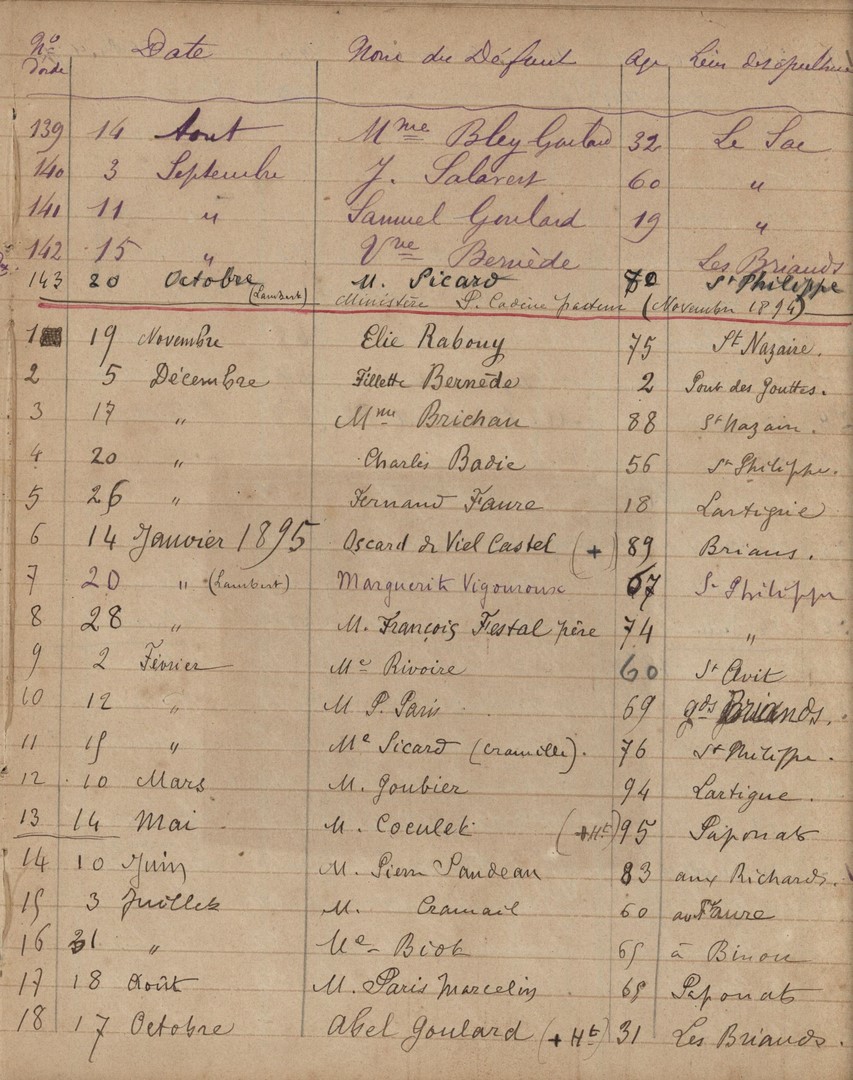 N° d'ordre Date Nom du Défunt Age Lieu de sépulture
139 14 Aout Mme Bley Goulard 32 Le Sac
140 3 Septembre J. Salavert 60 "
141 11 " Samuel Goulard 19 "
142 15 " Vve Bernède Les Briands
143 20 Octobre (Lambert) M. Sicard 70 St Philippe
Ministère P. Cadène pasteur (Novembre 1894)
1 19 Novembre Elie Rabouy 75 St Nazaire.
2 5 Décembre Fillette Bernède 2 Pont des Gouttes.
3 17 " Mme Brichau 88 St Nazaire.
4 20 " Charles Badie 56 St Philippe.
5 26 " Fernand Faure 18 Lartigue
6 14 Janvier 1895 Oscard de Viel Castel (+) 89 Brians.
7 20 " (Lambert) Marguerite Vigouroux 67 St Philippe
8 28 " M. François Festal père 74 "
9 2 Février Me Rivoire 60 St Avit
10 12 " M P. Paris 69 gds Briands.
11 15 " Me Sicard (Cramille). 76 St Philippe.
12 10 Mars M. Goubier 94 Lartigue.
13 14 Mai M. Coculet (+ Ht) 95 Paponat
14 10 Juin M. Pierre Pandeau 83 aux Richards.
15 3 Juillet M. Cramail 60 au Faure
16 31 " Me Biot 65 à Binou
17 18 Août M. Paris Marcelin 65 Paponat
18 17 Octobre Abel Goulard (+ Ht) 31 Les Briands.